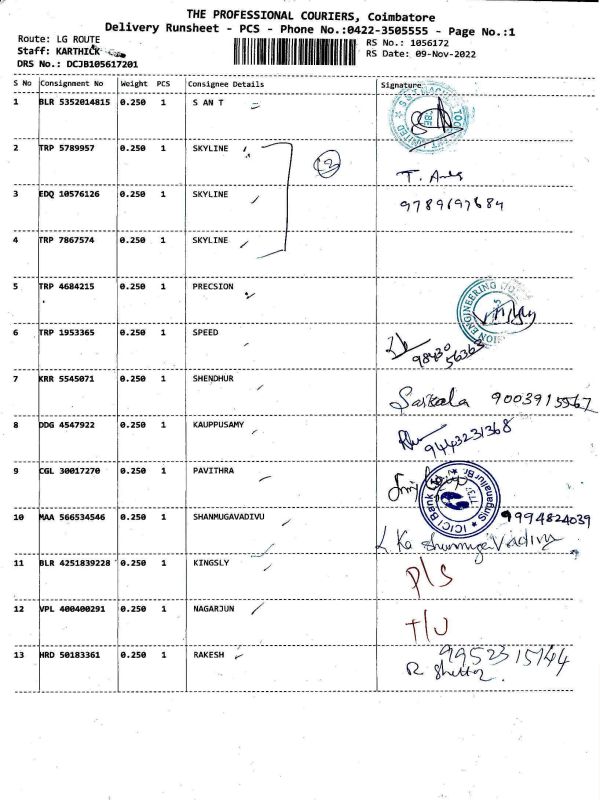 THE PROFESSIONAL COURIERS, Coimbatore
Delivery Runsheet - PCS - Phone No.:0422-3505555 - Page No.:1
Route: LG ROUTE
Staff: KARTHICK
DRS No.: DCJB105617201
RS No.: 1056172
RS Date: 09-Nov-2022
S No Consignment No Weight PCS Consignee Details Signature
1 BLR 5352014815 0.250 1 S AN T
2 TRP 5789957 0.250 1 SKYLINE
3 EDQ 10576126 0.250 1 SKYLINE 9789697684
4 TRP 7867574 0.250 1 SKYLINE
5 TRP 4684215 0.250 1 PRECSION
6 TRP 1953365 0.250 1 SPEED 98430 56363
7 KRR 5545071 0.250 1 SHENDHUR Sasikala 9003915567
8 DDG 4547922 0.250 1 KAUPPUSAMY 9443231368
9 CGL 30017270 0.250 1 PAVITHRA ICICI Bank Singanallur Br.
10 MAA 566534546 0.250 1 SHANMUGAVADIVU 9994824039
11 BLR 4251839228 0.250 1 KINGSLY P/S
12 VPL 400400291 0.250 1 NAGARJUN
13 HRD 50183361 0.250 1 RAKESH 9952315144